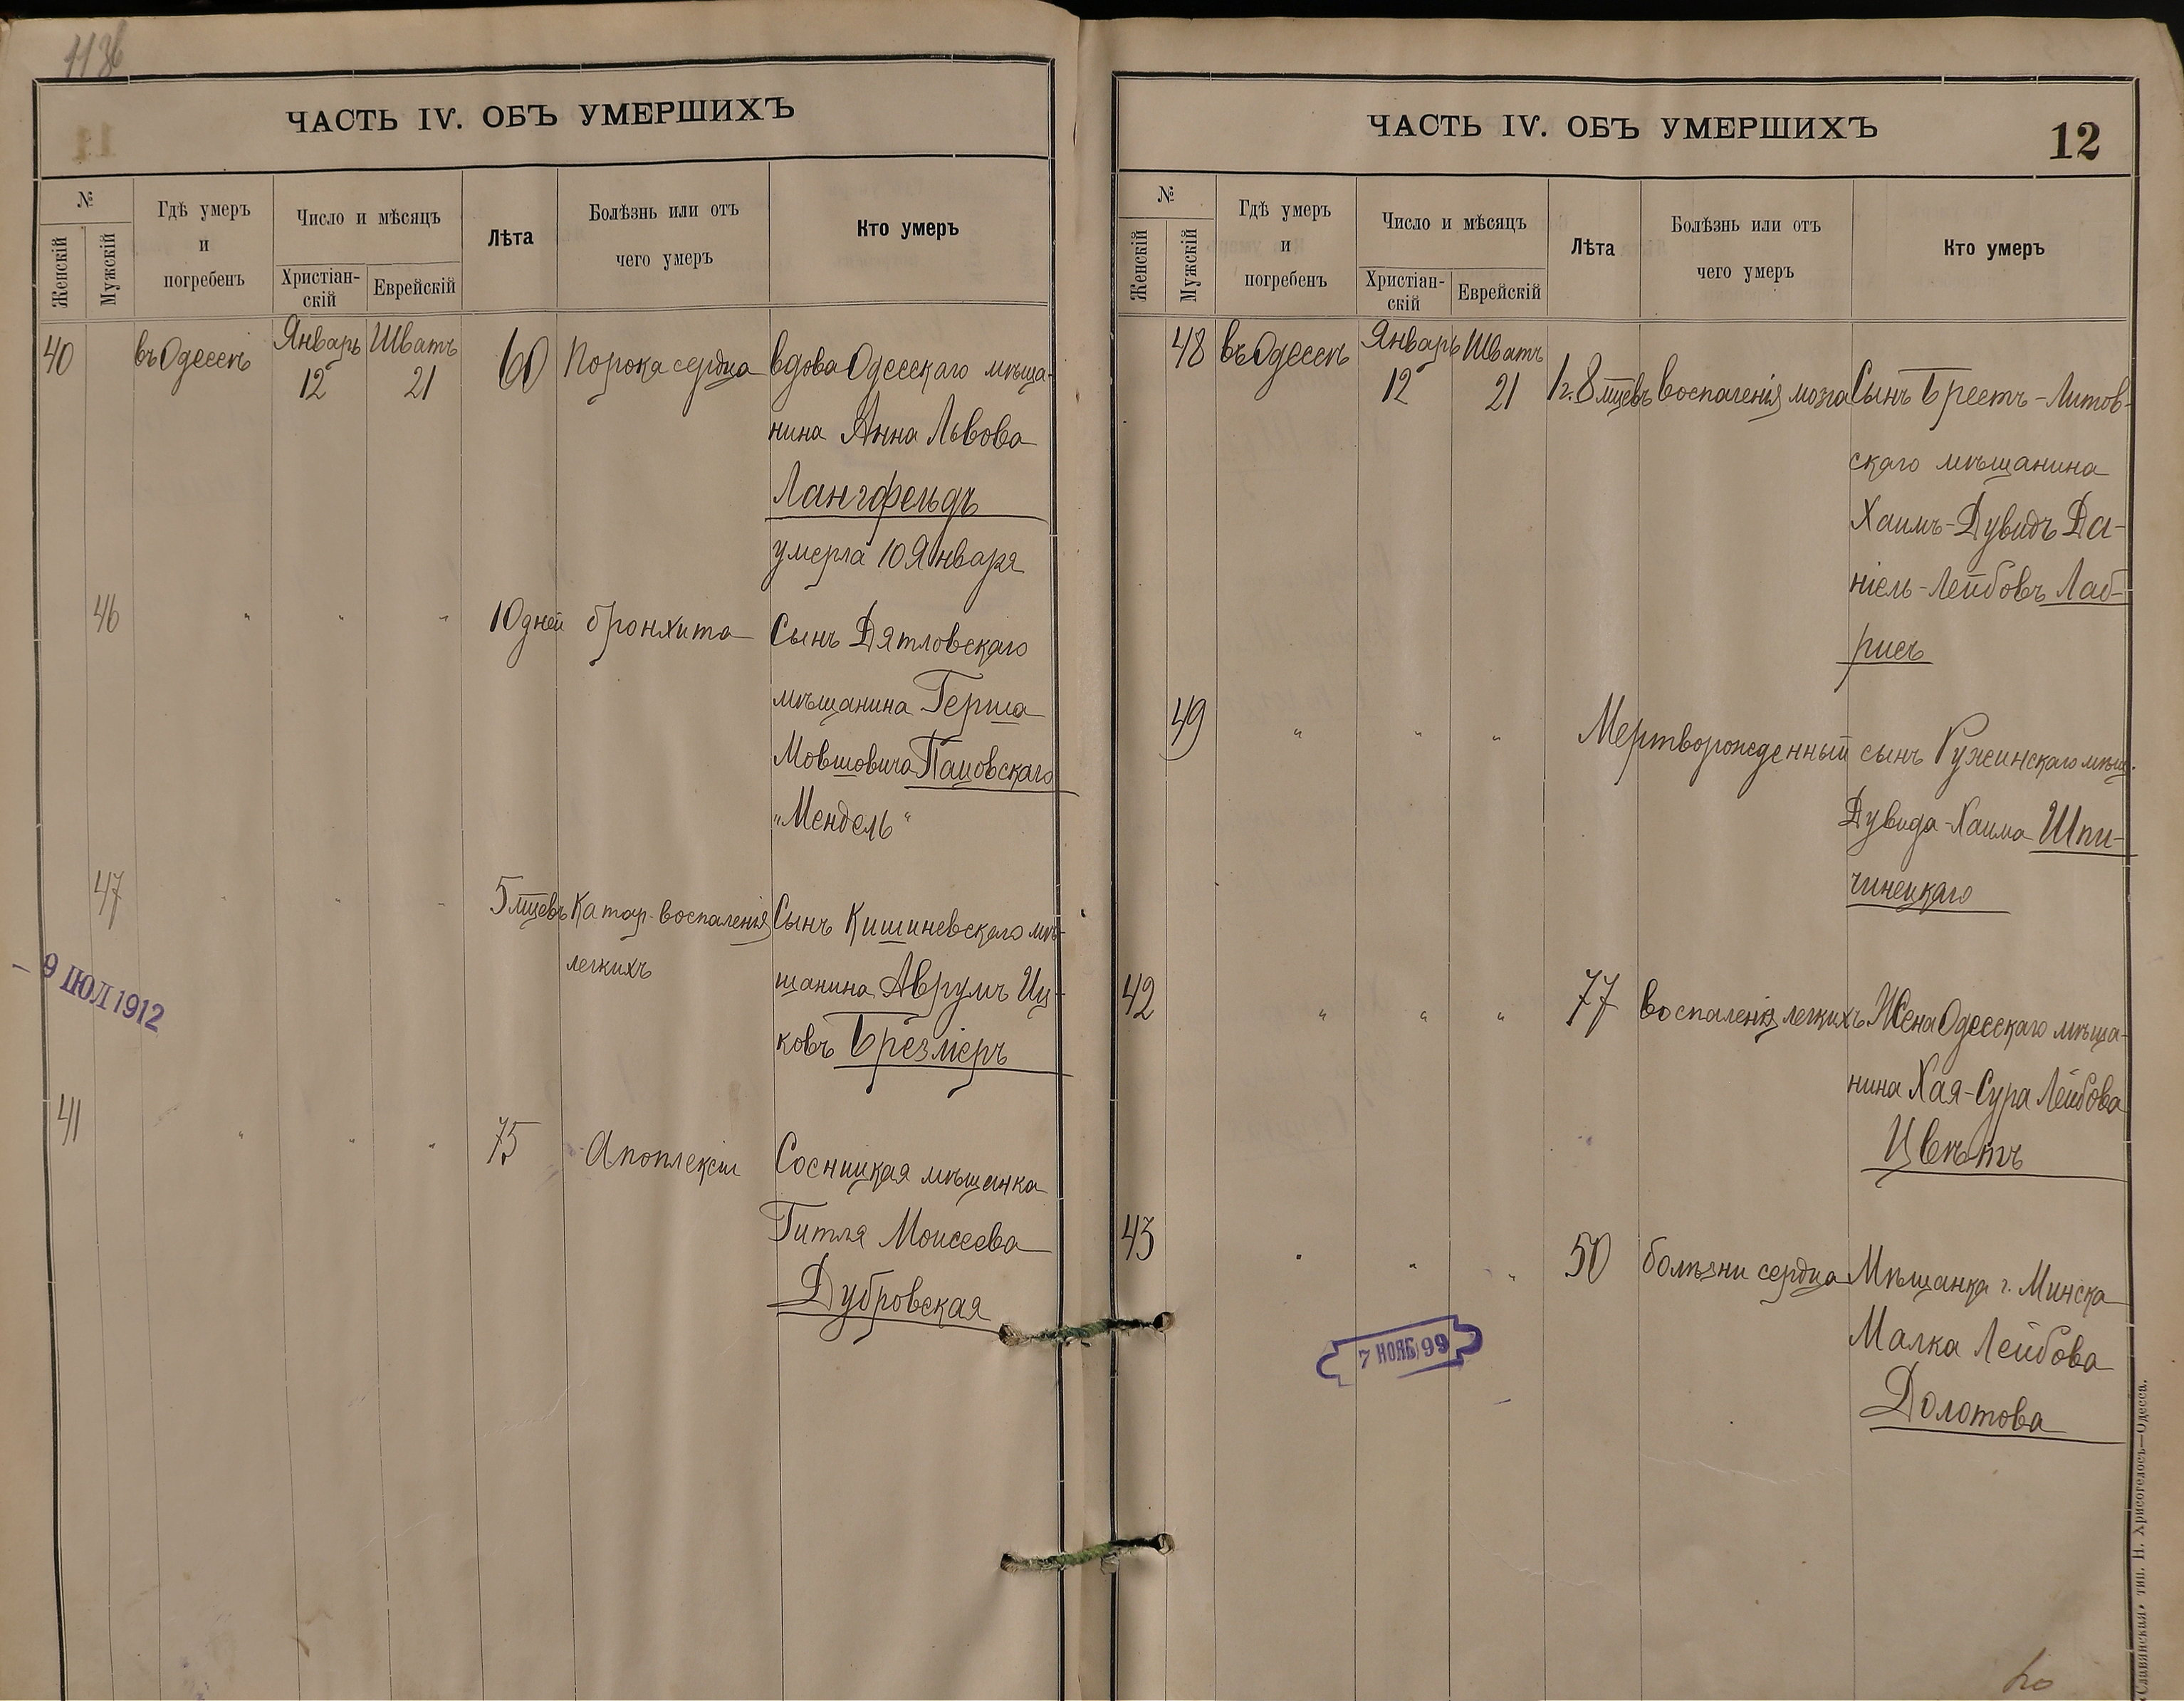 ЧАСТЬ IV. ОБЪ УМЕРШИХЪ
№
Женскій
Мужскій
Гдѣ умеръ
и
погребенъ
Число и мѣсяцъ
Христіан-
скій
Еврейскій
Лѣта
Болѣзнь или отъ
чего умеръ
Кто умеръ
40 въ Одессѣ Январь Шватъ 60 Порока сердца вдова Одесскаго мѣща-
12 21
нина Анна Львова
Лангфельдъ
умерла 10 Января
46 " " " 10 дней бронхита Сынъ Дятловскаго
мѣщанина Герша
Мовшовича Пацовскаго
"Мендель"
47 " " " 5 мцевъ Катар. воспаленія Сынъ Кишиневскаго мѣ-
легкихъ
щанина Аврумъ Иц-
ковъ Брезмеръ
- 9 ІЮЛ 1912
41 " " " 75 Апоплексіи Сосницкая мѣщанка
Гитля Моисеева
Дубровская
ЧАСТЬ IV. ОБЪ УМЕРШИХЪ
12
№
Женскій
Мужскій
Гдѣ умеръ
и
погребенъ
Число и мѣсяцъ
Христіан-
скій
Еврейскій
Лѣта
Болѣзнь или отъ
чего умеръ
Кто умеръ
48 въ Одессѣ Январь Шватъ
12 21 1г. 8 мцевъ воспаленія мозга Сынъ Брестъ-Литов-
скаго мѣщанина
Хаимъ-Дувидъ Да-
ніель-Лейбовъ Лаб-
рисъ
49 " " " Мертворожденный сынъ Ружинскаго мѣщ.
Дувида-Хаима Шпи-
чинецкаго
42 " " " 77 воспаленія легкихъ Жена Одесскаго мѣща-
нина Хая-Сура Лейбова
Цвѣтъ
43 " " " 50 болѣзни сердца Мѣщанка г. Минска
Малка Лейбова
Долотова
7 НОЯБ 99
«Славянская» тип. Н. Хрисогелосъ—Одесса.